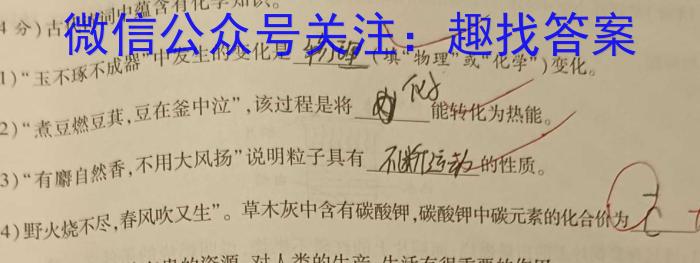 4分)古诗词中蕴含有化学知识。
微信公众号关注：趣找答案
1)“玉不琢不成器”中发生的变化是 物理 (填“物理”或“化学”)变化。
2)“煮豆燃豆萁，豆在釜中泣”，该过程是将 化学 能转化为热能。
3)“有麝自然香，不用大风扬”说明粒子具有 不断运动 的性质。
4)野火烧不尽，春风吹又生”。草木灰中含有碳酸钾，碳酸钾中碳元素的化合价为
的资源，对人类的生产、生活有很重要的作用